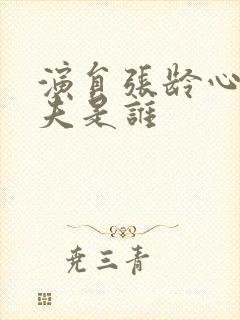 演員張龄心
夫是誰
尭三青